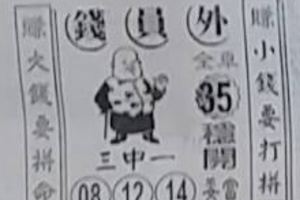 錢員外
賺大錢要拼命
賺小錢要打拼
全車
35
穩開
三中一
08 12 14
當